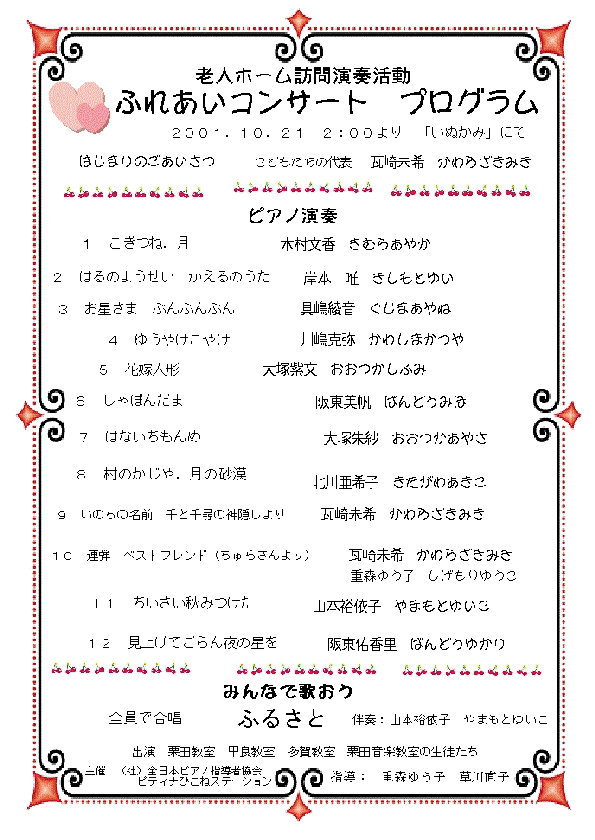 老人ホーム訪問演奏活動
ふれあいコンサート　プログラム
２００１．１０．２１　２：００より　「いぬかみ」にて
はじまりのごあいさつ　こどもたちの代表　瓦崎未希　かわらざきみき
ピアノ演奏
１　こぎつね．月　木村文香　きむらあやか
２　はるのようせい　かえるのうた　岸本　唯　きしもとゆい
３　お星さま　ぶんぶんぶん　具嶋綾音　ぐしまあやね
４　ゆうやけこやけ　川嶋克弥　かわしまかつや
５　花嫁人形　大塚紫文　おおつかしふみ
６　しゃぼんだま　阪東美帆　ばんどうみほ
７　はないちもんめ　大塚朱紗　おおつかあやさ
８　村のかじや．月の砂漠　北川亜希子　きたがわあきこ
９　いのちの名前　千と千尋の神隠しより　瓦崎未希　かわらざきみき
１０　連弾　ベストフレンド（ちゅらさんより）　瓦崎未希　かわらざきみき
重森ゆう子　しげもりゆうこ
１１　ちいさい秋みつけた　山本裕依子　やまもとゆいこ
１２　見上げてごらん夜の星を　阪東佑香里　ばんどうゆかり
みんなで歌おう
全員で合唱　ふるさと　伴奏：山本裕依子　やまもとゆいこ
出演　栗田教室　甲良教室　多賀教室　栗田音楽教室の生徒たち
主催　（社）全日本ピアノ指導者協会
ピティナひこねステーション　指導：　重森ゆう子　草川直子